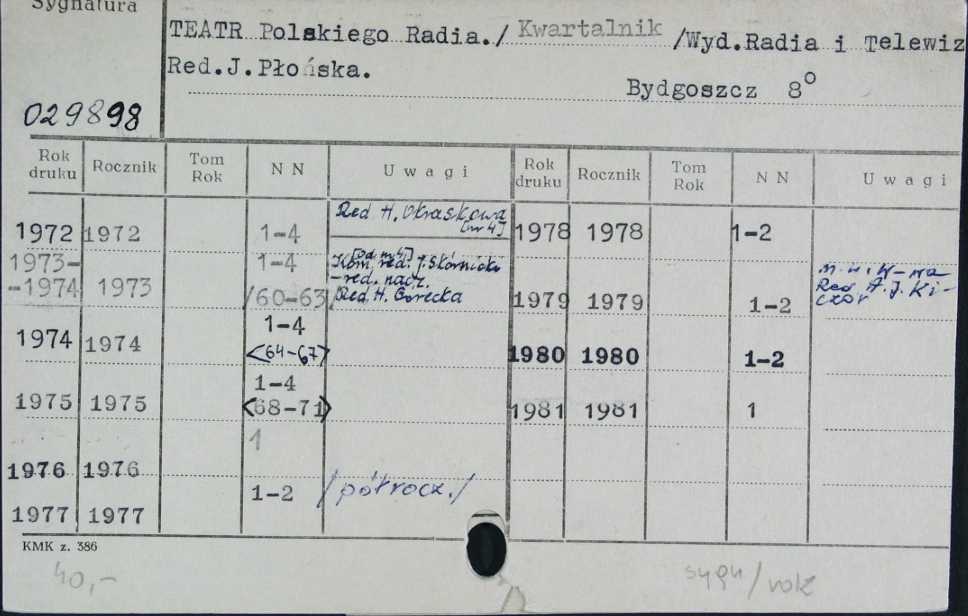 Sygnatura
TEATR Polskiego Radia./ Kwartalnik /Wyd.Radia i Telewiz
Red.J.Płońska.
Bydgoszcz 8°
029898
Rok druku Rocznik Tom Rok N N Uwagi Rok druku Rocznik Tom Rok N N Uwagi
1972 1972 1-4 Red H. Okraskowa [nr 4] 1978 1978 1-2
1973-
-1974 1973 1-4 /60-63/ [Od nr 4]
Kom. red. J. Skórnicki
-red. nacz.
Red H. Gorecka
1979 1979 1-2
Red A. J. Ki-
czor
1974 1974 1-4 <64-67> 1980 1980 1-2
1975 1975 1-4 <68-71> 1981 1981 1
1976 1976 1
1977 1977 1-2 /półrocz./
KMK z. 386
40,-
sygn/rok